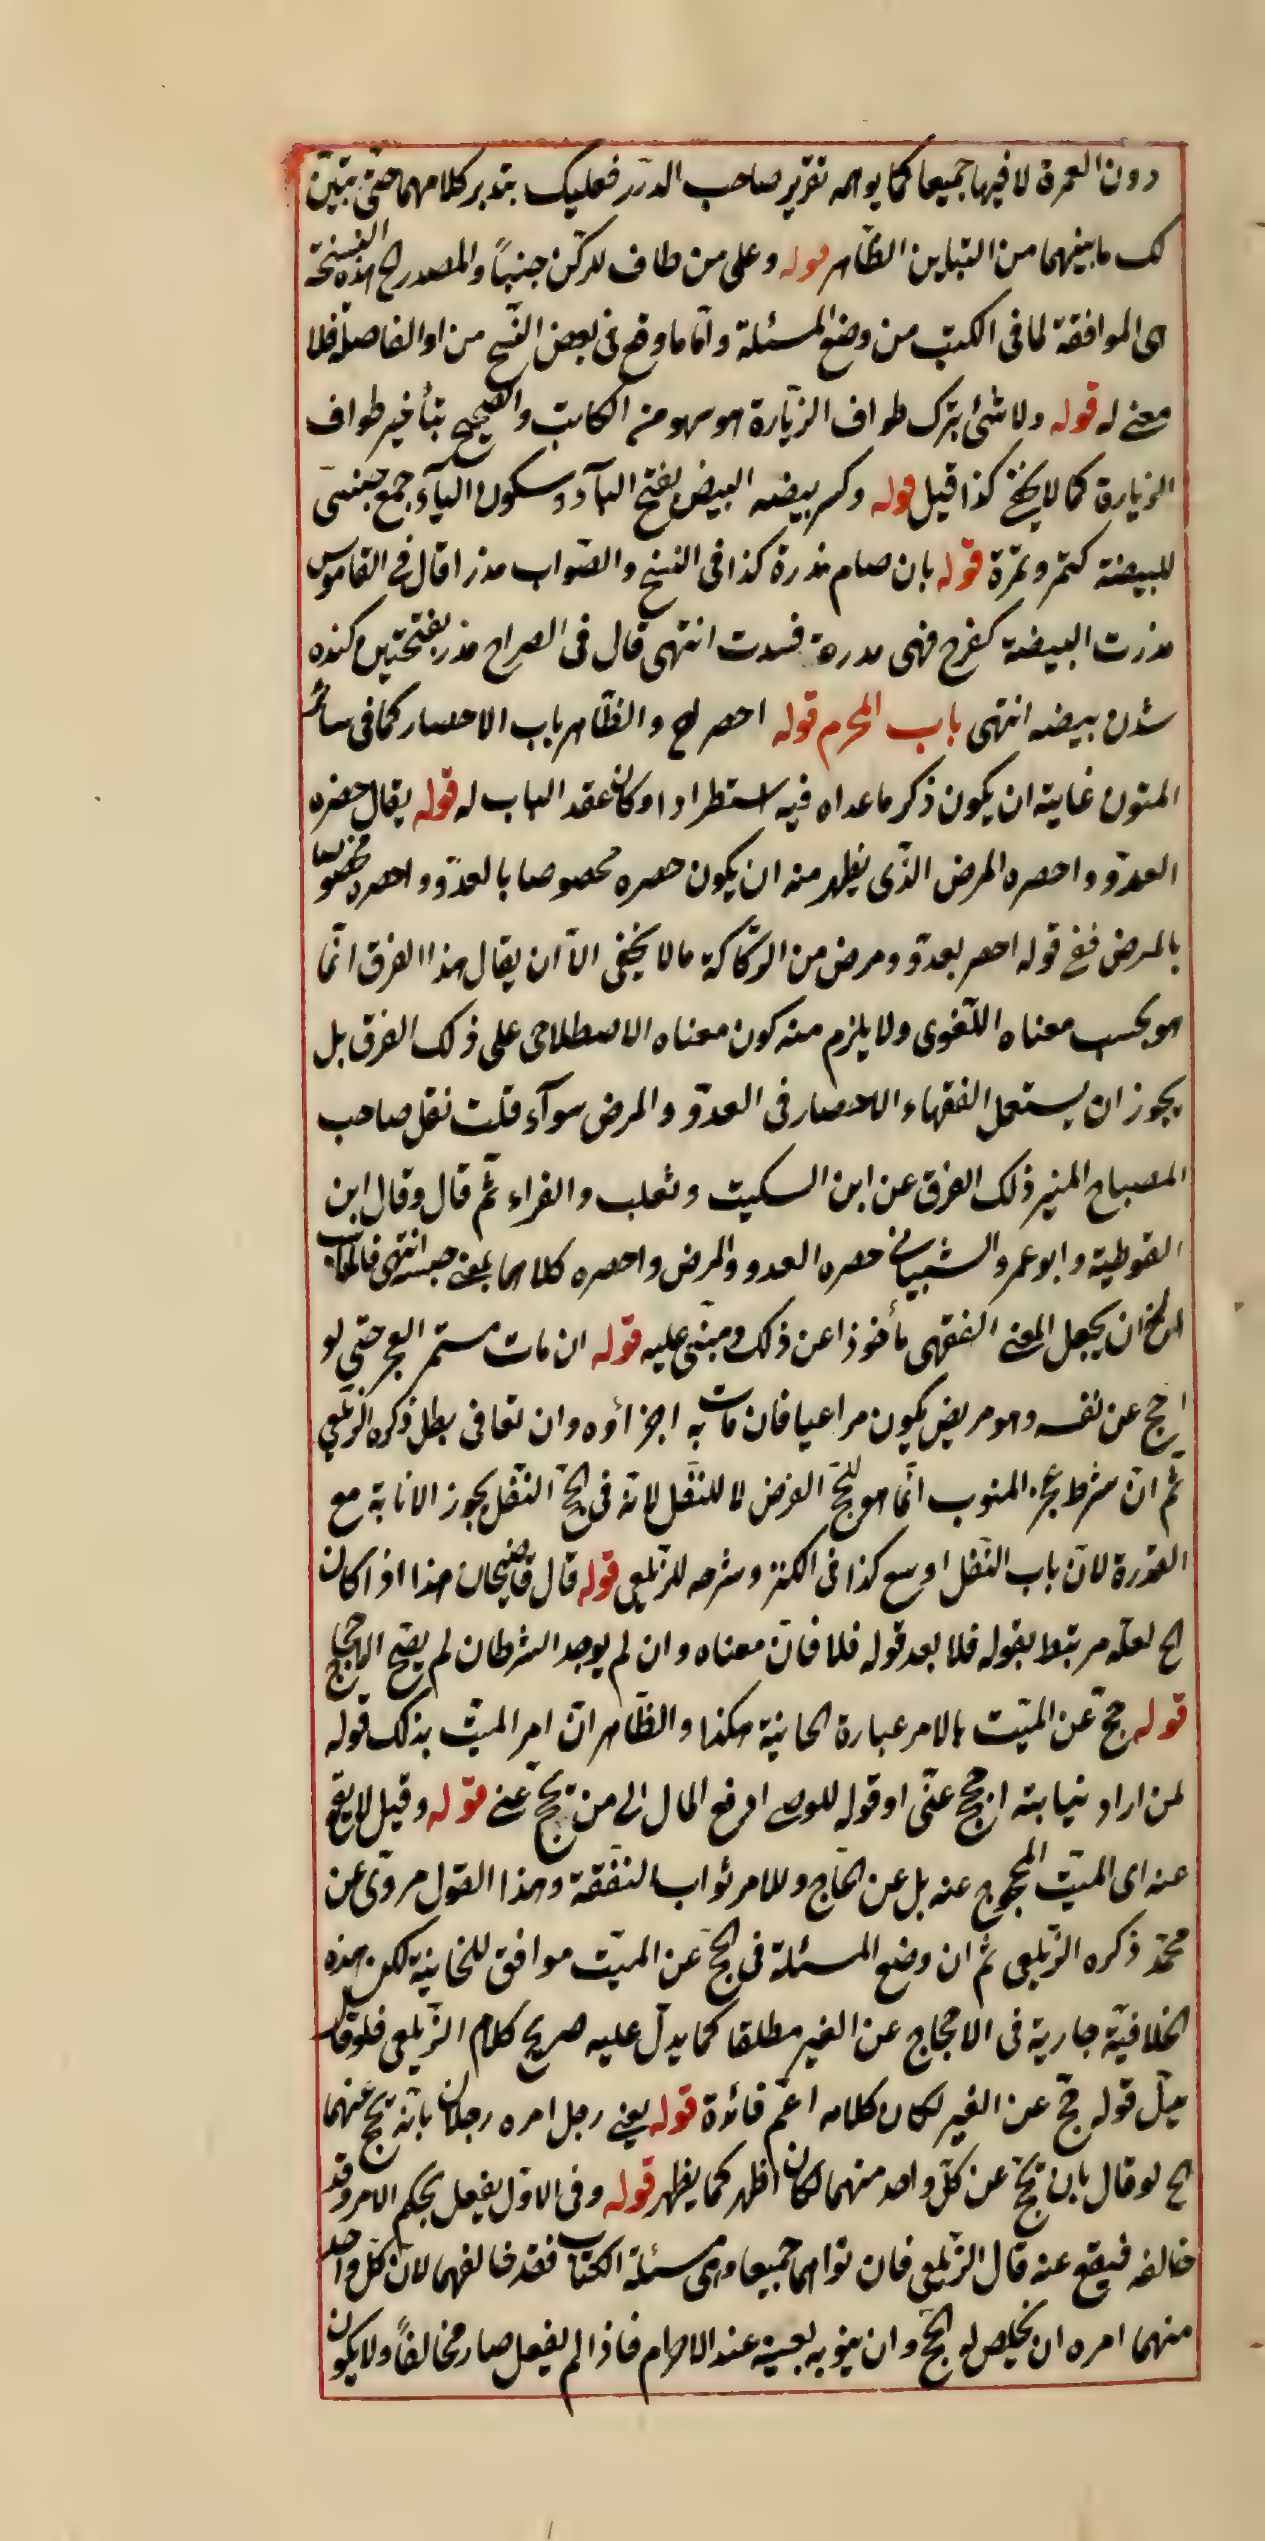 دون العمرة لا فيها جميعا كما يوهمه تقرير صاحب الدرر فعليك بتدبر كلامهما حتى يتبين
لك ما بينهما من التباين الظاهر قوله وعلى من طاف للركن جنبًا والمصدر الخ هذه النسخة
هى الموافقة لما فى الكتب من وضع المسئلة وأما ما وقع فى بعض النسخ من او الفاصلة فلا
معنى له قوله ولا شئ بترك طواف الزيارة هو سهو من الكاتب والصحيح بتأخير طواف
الزيارة كما لا يخفى كذا قيل قوله وكسر بيضه البيض بفتح الباء وسكون الياء جمع جنسى
للبيضة كتمر وتمرة قوله بان صام مذرة كذا فى النسخ والصواب مذرا قال فى القاموس
مذرت البيضة كفرح فهى مذرة فسدت انتهى قال فى الصراح مذر بفتحتين كنده
شدن بيضه انتهى باب المحرم قوله احصر الخ والظاهر باب الاحصار كما فى سائر
المتون غايته ان يكون ذكر ما عداه فيه استطرادا وكان عقد الباب له قوله يقال حصره
العدو واحصره المرض الذى يظهر منه ان يكون حصره مخصوصا بالعدو واحصره مخصوصا
بالمرض ففى قوله احصر بعدو ومرض من الركاكة ما لا يخفى الا ان يقال هذا الفرق انما
هو بحسب معناه اللغوى ولا يلزم منه كون معناه الاصطلاحى على ذلك الفرق بل
يجوز ان يستعمل الفقهاء الاحصار فى العدو والمرض سواء قلت نقل صاحب
المصباح المنير ذلك الفرق عن ابن السكيت وثعلب والفراء ثم قال وقال ابن
القوطية وابو عمرو الشيبانى حصره العدو والمرض واحصره كلاهما بمعنى حبسه انتهى فالمناسب
ان يجعل المعنى الفقهى مأخوذا عن ذلك ومبنى عليه قوله ان مات مستمر العجز حتى لو
احج عن نفسه وهو مريض يكون مراعيا فان مات به اجزاؤه وان تعافى بطل ذكره الزيلعى
ثم ان شرط عجز المنوب انما هو للحج الفرض لا للنفل لانه فى الحج النفل يجوز الانابة مع
القدرة لان باب النفل اوسع كذا فى الكنز وشرحه للزيلعى قوله قال قاضيخان هذا اذا كان
الخ لعله مرتبط بقوله فلا بعد قوله فلا فان معناه وان لم يوجد الشرطان لم يصح الاحجاج
قوله حج عن الميت بالامر عبارة الخانية هكذا والظاهر ان امر الميت بذلك قوله
لمن اراد نيابته ان حج عنى او قوله للوصى ادفع المال الى من يحج عنى قوله وقيل لا يقع
عنه اى الميت المحجوج عنه بل عن الحاج وللامر ثواب النفقة وهذا القول مروى عن
محمد ذكره الزيلعى ثم ان وضع المسئلة فى الحج عن الميت موافق للخانية لكن هذه
الخلافية جارية فى الاحجاج عن الغير مطلقا كما يدل عليه صريح كلام الزيلعى فلو قال
بدل قوله حج عن الغير لكان كلامه اعم فائدة قوله يعنى رجل امره رجلان بانه يحج عنهما
الخ لو قال بان يحج عن كل واحد منهما لكان اظهر كما يظهر قوله وفى الاول يفعل بحكم الامر وقد
خالف فيقع عنه قال الزيلعى فان نواهما جميعا وهى مسئلة الكتاب فقد خالفهما لان كل واحد
منهما امره ان يخلص له الحج وان ينويه بعينه عند الاحرام فاذا لم يفعل صار مخالفًا ولا يكون